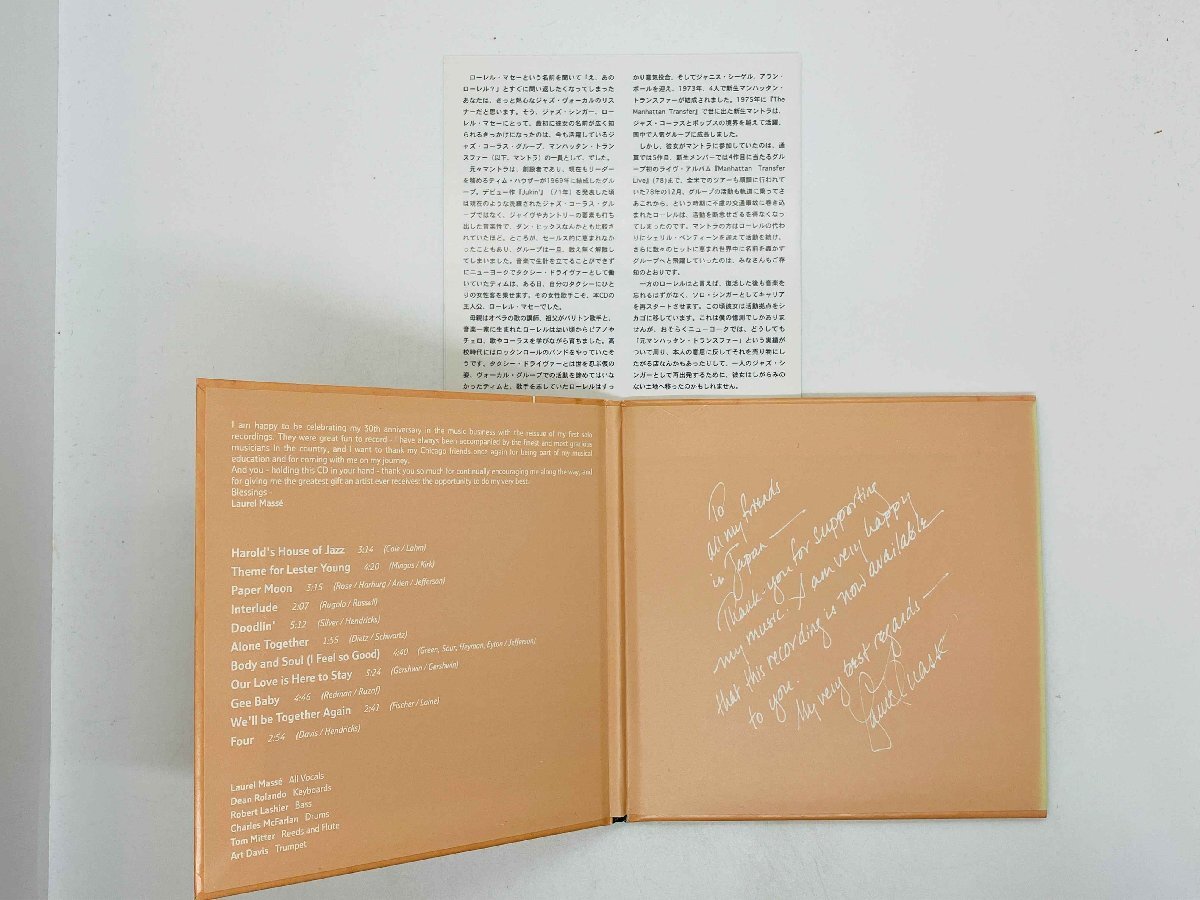 ローレル・マセーという名前を聞いて「え、あの
ローレル？」とすぐに問い返したくなってしまった
あなたは、きっと熱心なジャズ・ヴォーカルのリス
ナーだと思います。そう、ジャズ・シンガー、ロー
レル・マセーにとって、最初に彼女の名前が広く知
られるきっかけになったのは、今も活躍しているジ
ャズ・コーラス・グループ、マンハッタン・トラン
スファー（以下、マントラ）の一員として、でした。
元々マントラは、創設者であり、現在もリーダー
を務めるティム・ハウザーが1969年に結成したグル
ープ。デビュー作『Jukin'』（71年）を発表した頃
は現在のような洗練されたジャズ・コーラス・グル
ープではなく、ジャイヴやカントリーの要素も打ち
出した音楽性で、ダン・ヒックスなんかとも比較さ
れていたほど。ところが、セールス的に恵まれなか
ったこともあり、グループは一旦、敢え無く解散し
てしまいました。音楽で生計を立てることができず
にニューヨークでタクシー・ドライヴァーとして働
いていたティムは、ある日、自分のタクシーにひと
りの女性客を乗せます。その女性歌手こそ、本CDの
主人公、ローレル・マセーでした。
母親はオペラの歌の講師、祖父がバリトン歌手と、
音楽一家に生まれたローレルは幼い頃からピアノや
チェロ、歌やコーラスを学びながら育ちました。高
校時代にはロックンロールのバンドをやっていたそ
うです。タクシー・ドライヴァーとは世を忍ぶ仮の
姿、ヴォーカル・グループでの活動を諦めてはいな
かったティムと、歌手を志していたローレルはすっ
かり意気投合、そしてジャニス・シーゲル、アラン・
ポールを迎え、1973年、4人で新生マンハッタン・
トランスファーが結成されました。1975年に『The
Manhattan Transfer』で世に出た新生マントラは、
ジャズ・コーラスとポップスの境界を越えて活躍、
国中で人気グループに成長しました。
しかし、彼女がマントラに参加していたのは、通
算では5作目、新生メンバーでは4作目に当たるグル
ープ初のライヴ・アルバム『Manhattan Transfer
Live』（78）まで。全米でのツアーも順調に行われて
いた78年の12月、グループの活動も軌道に乗ってさ
あこれから、という時期に不慮の交通事故に巻き込
まれたローレルは、活動を断念せざるを得なくなっ
てしまったのです。マントラの方はローレルの代わ
りにシェリル・ベンティーンを迎えて活動を続け、
さらに数々のヒットに恵まれ世界中に名前を轟かす
グループへと飛躍していったのは、みなさんもご存
知のとおりです。
一方のローレルはと言えば、復活した後も音楽を
忘れるはずがなく、ソロ・シンガーとしてキャリア
を再スタートさせます。この頃彼女は活動拠点をシ
カゴに移しています。これは僕の憶測でしかありま
せんが、おそらくニューヨークでは、どうしても
「元マンハッタン・トランスファー」という実績が
ついて周り、本人の意思に反してそれを売り物にし
たがる店なんかもあったりして、一人のジャズ・シ
ンガーとして再出発するために、彼女はしがらみの
ない土地へ移ったのかもしれません。
I am happy to be celebrating my 30th anniversary in the music business with the reissue of my first solo
recordings. They were great fun to record - I have always been accompanied by the finest and most gracious
musicians in the country, and I want to thank my Chicago friends once again for being part of my musical
education and for coming with me on my journey.
And you - holding this CD in your hand - thank you so much for continually encouraging me along the way, and
for giving me the greatest gift an artist ever receives: the opportunity to do my very best.
Blessings -
Laurel Massé
Harold's House of Jazz 3:14 (Coie / Lahm)
Theme for Lester Young 4:20 (Mingus / Kirk)
Paper Moon 3:15 (Rose / Harburg / Arlen / Jefferson)
Interlude 2:07 (Rugolo / Russell)
Doodlin' 5:12 (Silver / Hendricks)
Alone Together 1:55 (Dietz / Schwartz)
Body and Soul (I Feel so Good) 4:40 (Green, Sour, Heyman, Eyton / Jefferson)
Our Love is Here to Stay 3:24 (Gershwin / Gershwin)
Gee Baby 4:46 (Redman / Razaf)
We'll be Together Again 2:41 (Fischer / Laine)
Four 2:54 (Davis / Hendricks)
Laurel Massé All Vocals
Dean Rolando Keyboards
Robert Lashier Bass
Charles McFarlan Drums
Tom Mitter Reeds and Flute
Art Davis Trumpet
To
all my friends
in Japan —
Thank-you for supporting
my music. I am very happy
that this recording is now available
to you.
My very best regards —
Laurel Massé